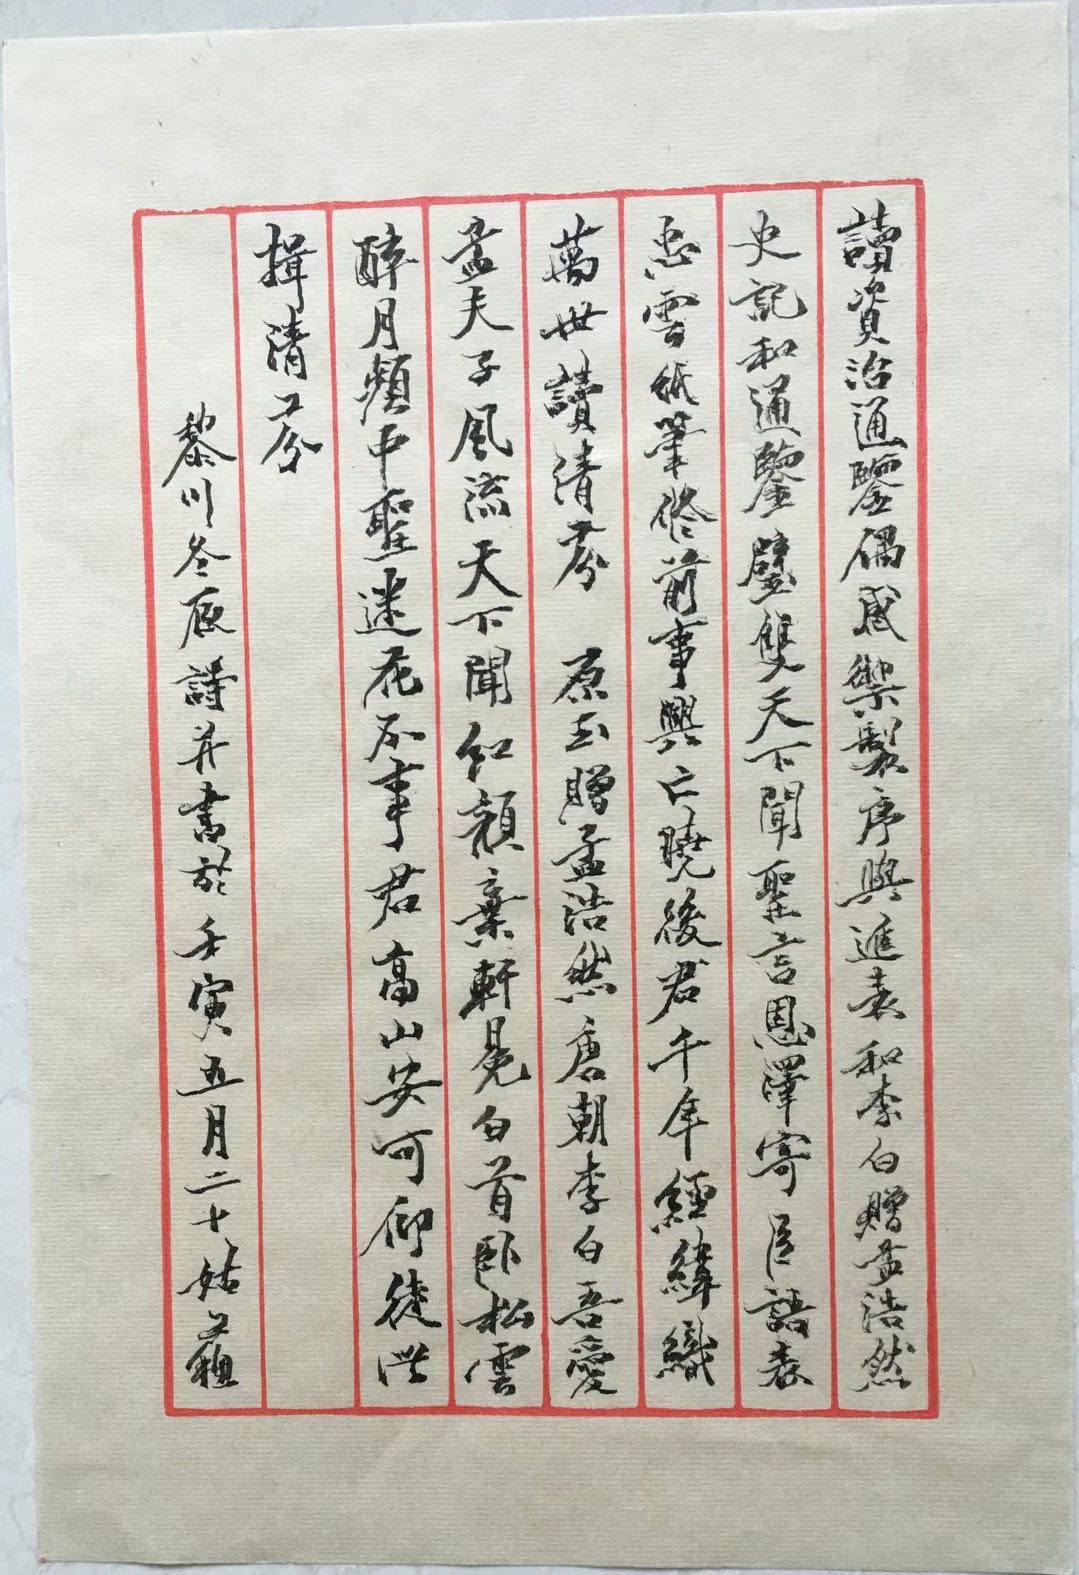 讀資治通鑒偶感禦製序與進表和李白贈孟浩然
史記和通鑒璧雙天下聞聖言恩澤寄臣語表
忠雲紙筆修前事興亡曉後君千年經緯織
萬世讀清芬 原玉贈孟浩然唐朝李白吾愛
孟夫子風流天下聞紅顏棄軒冕白首臥松雲
醉月頻中聖迷花不事君高山安可仰徒此
揖清芬
黎川冬底詩并書於壬寅五月二十姑蘇